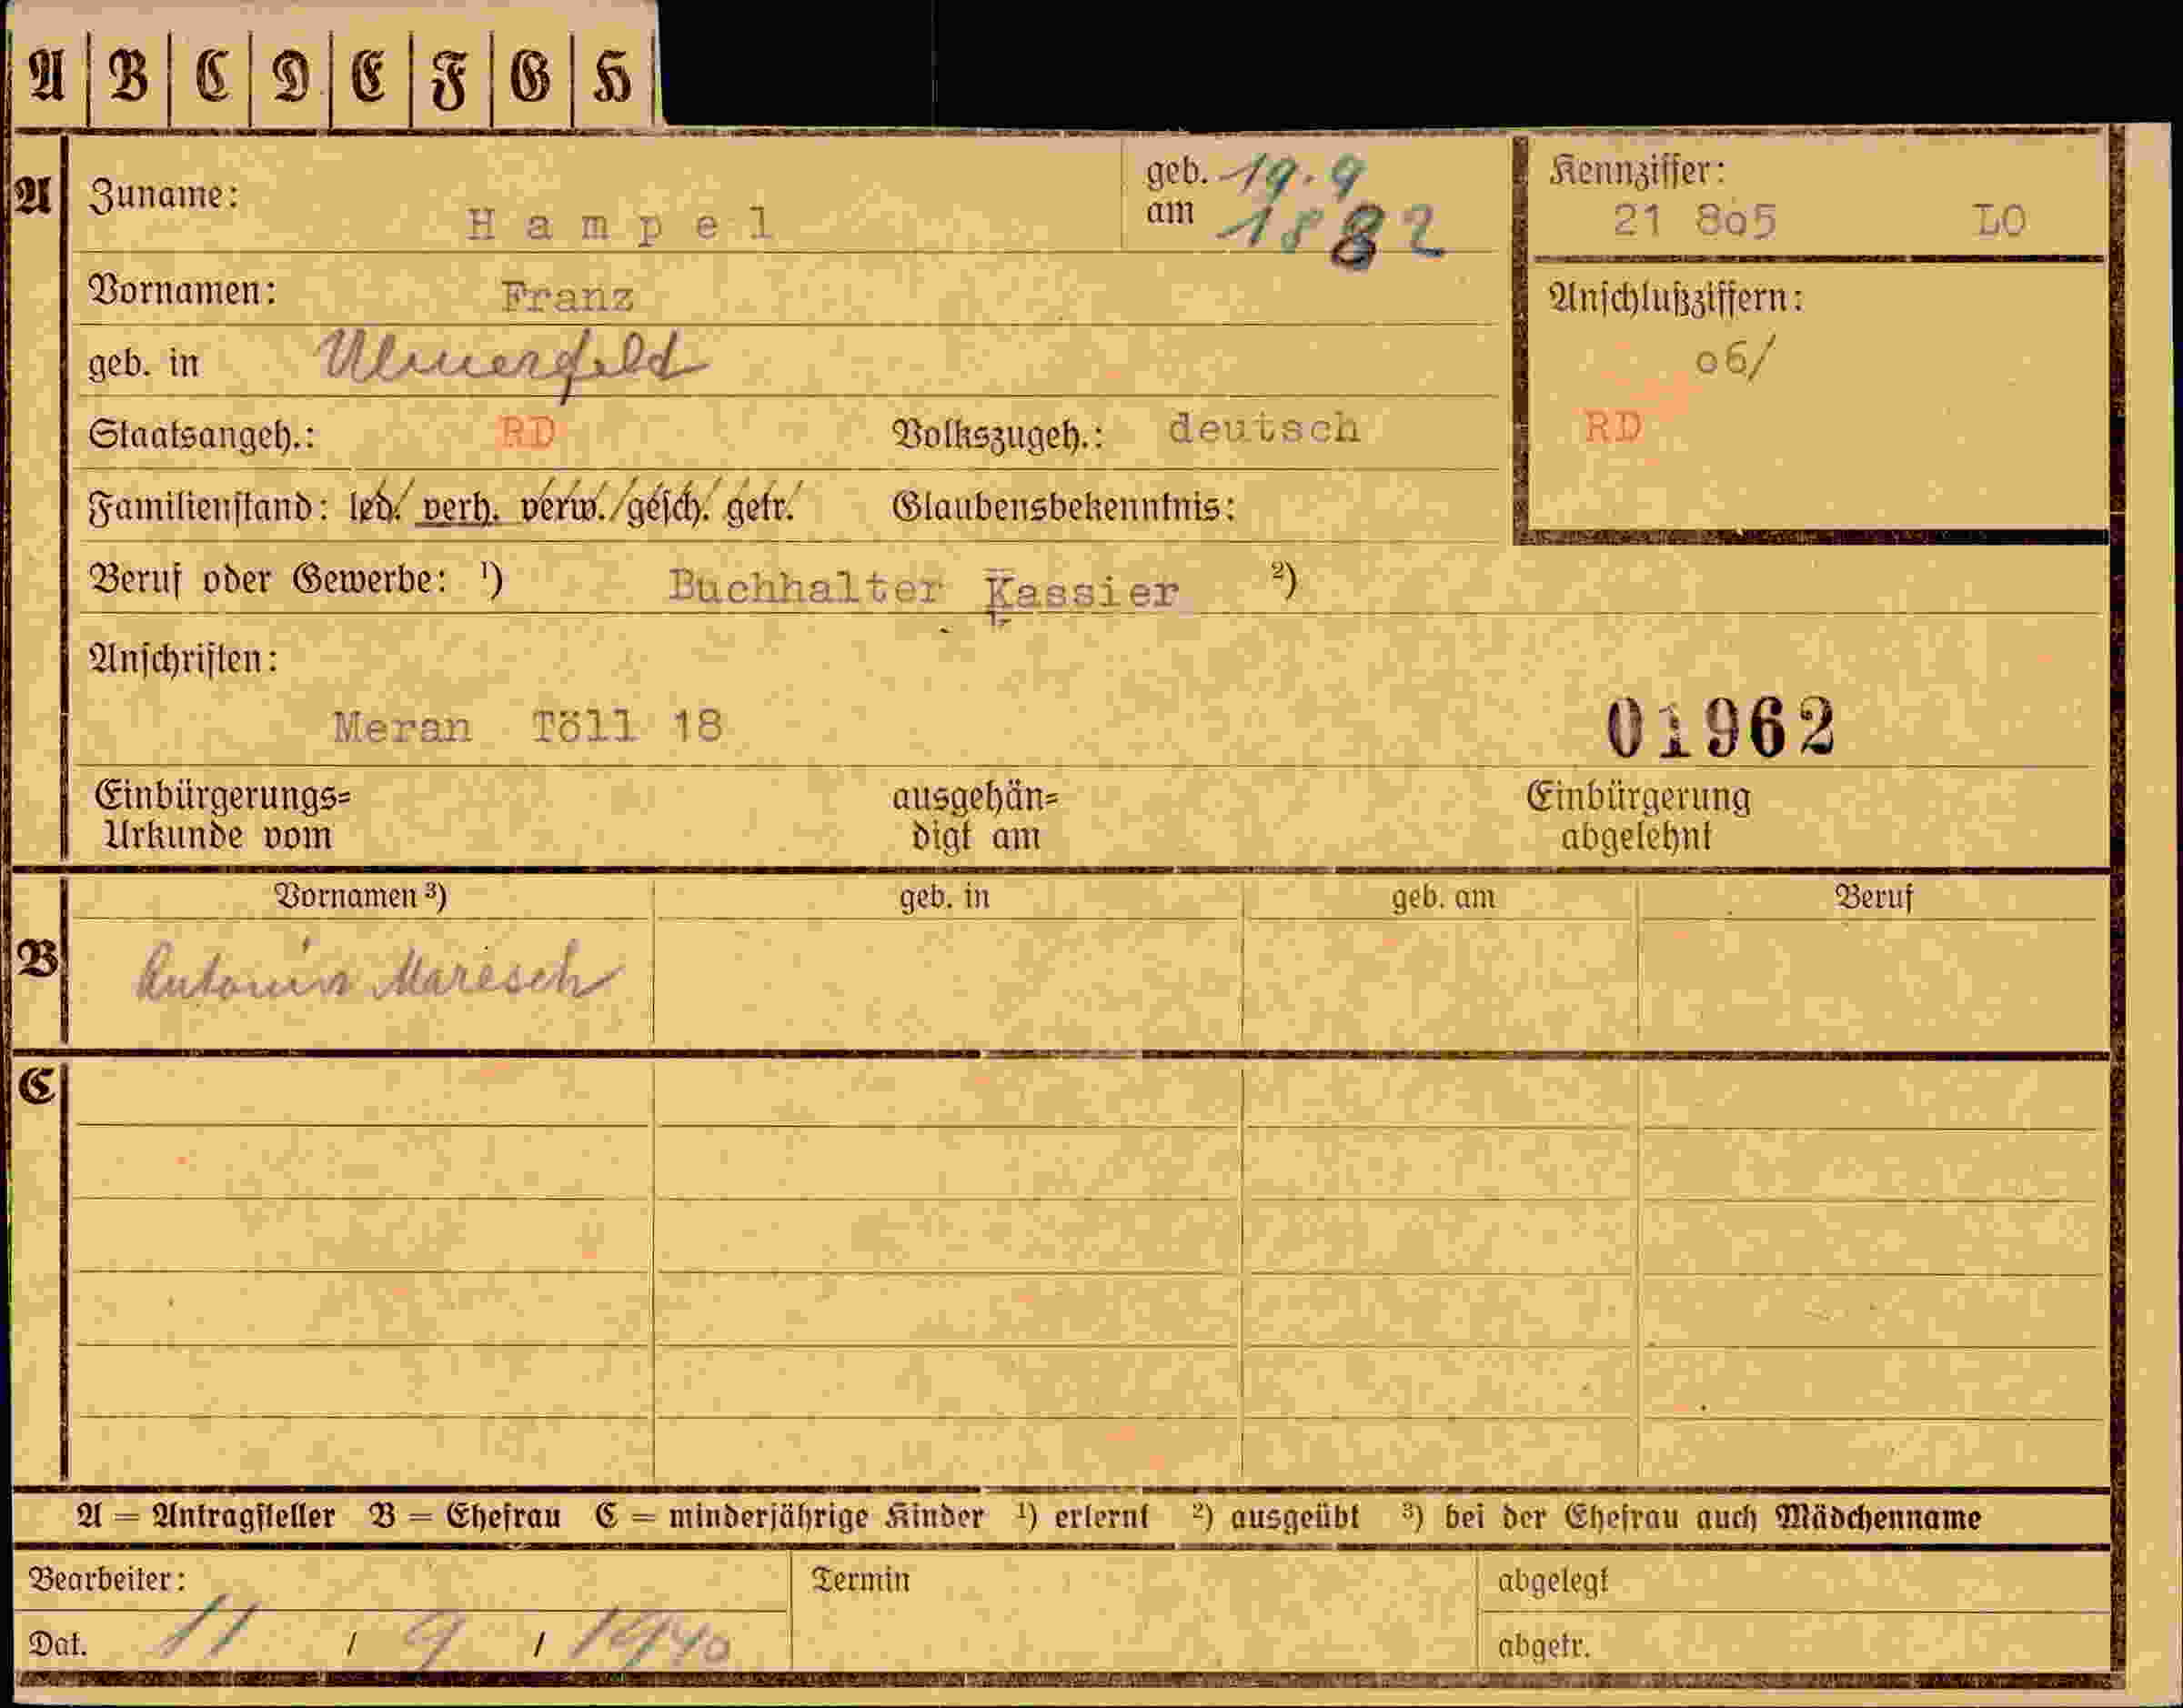 A B C D E F G H
A Zuname: Hampel geb. am 19.9 1882 Kennziffer: 21 8o5 LO
Vornamen: Franz Anschlußziffern:
geb. in Ulmerfeld o6/
Staatsangeh.: RD Volkszugeh.: deutsch RD
Familienstand: led. verh. verw. gesch. getr. Glaubensbekenntnis:
Beruf oder Gewerbe: ¹) Buchhalter Kassier ²)
Anschriften:
Meran Töll 18 01962
Einbürgerungs= ausgehän= Einbürgerung
Urkunde vom digt am abgelehnt
Vornamen ³) geb. in geb. am Beruf
B Antonia Maresch
C
A = Antragsteller B = Ehefrau C = minderjährige Kinder ¹) erlernt ²) ausgeübt ³) bei der Ehefrau auch Mädchenname
Bearbeiter: Termin abgelegt
Dat. 11 / 9 / 1940 abgetr.